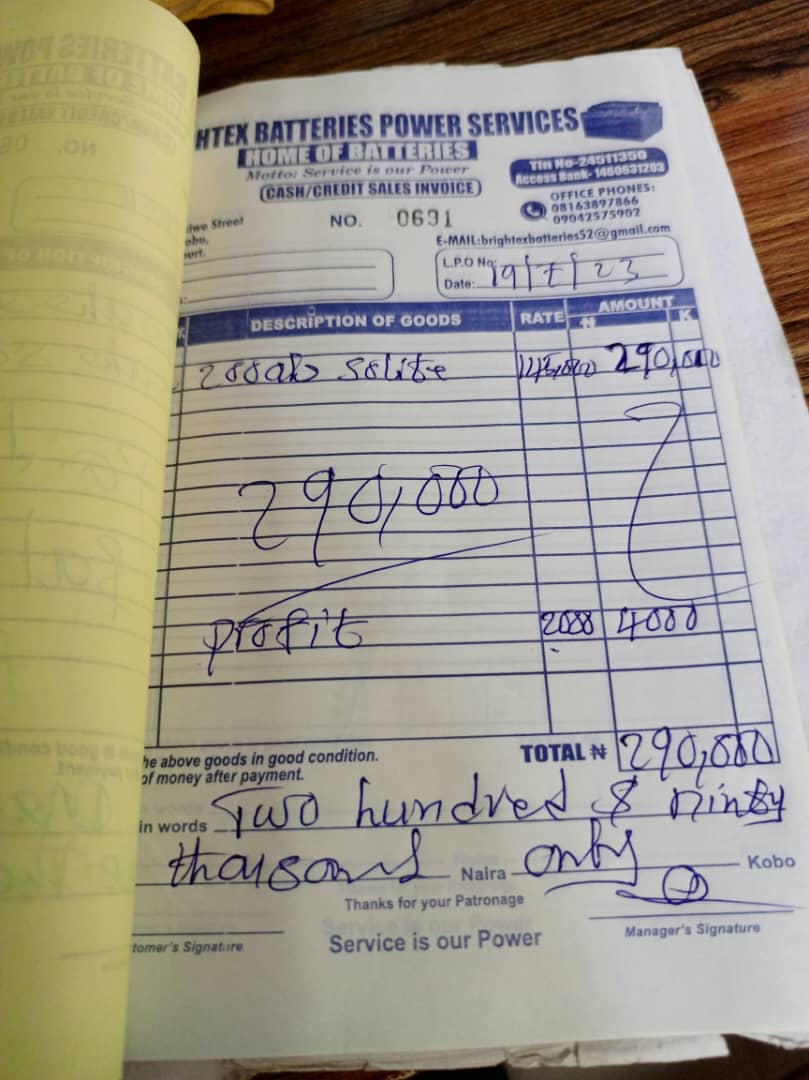 HTEX BATTERIES POWER SERVICES
HOME OF BATTERIES
Motto: Service is our Power
(CASH/CREDIT SALES INVOICE)
Tin No-24511350
Access Bank- 1460631203
OFFICE PHONES:
08163897866
09042575902
Street
NO. 0691
E-MAIL:brightexbatteries52@gmail.com
L.P.O No:
Date: 19/7/23
DESCRIPTION OF GOODS RATE AMOUNT
₦ K
200ah Solite 145,000 290,000
290,000
profit 2000 4000
he above goods in good condition.
of money after payment.
TOTAL ₦ 290,000
in words Two hundred & ninty
thousand Naira only Kobo
Thanks for your Patronage
tomer's Signature
Service is our Power
Manager's Signature